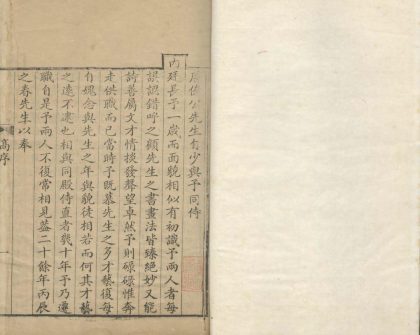 居俟公先生自少與予同侍
内廷長予一歲而面貌相似有初識予兩人者每
誤認錯呼之顧先生之書畫法皆臻絶妙又能
詩善属文才情掞發聲望卓然予則碌碌惟奔
走供職而已當時予既慕先生之多才藝復每
自媿念與先生之年與貌徒相若而何其才藝
之遠不逮也相與同殿侍直者㡬十年予乃遷
職自是予兩人不復常相見葢二十餘年丙辰
之春先生以奉
高序